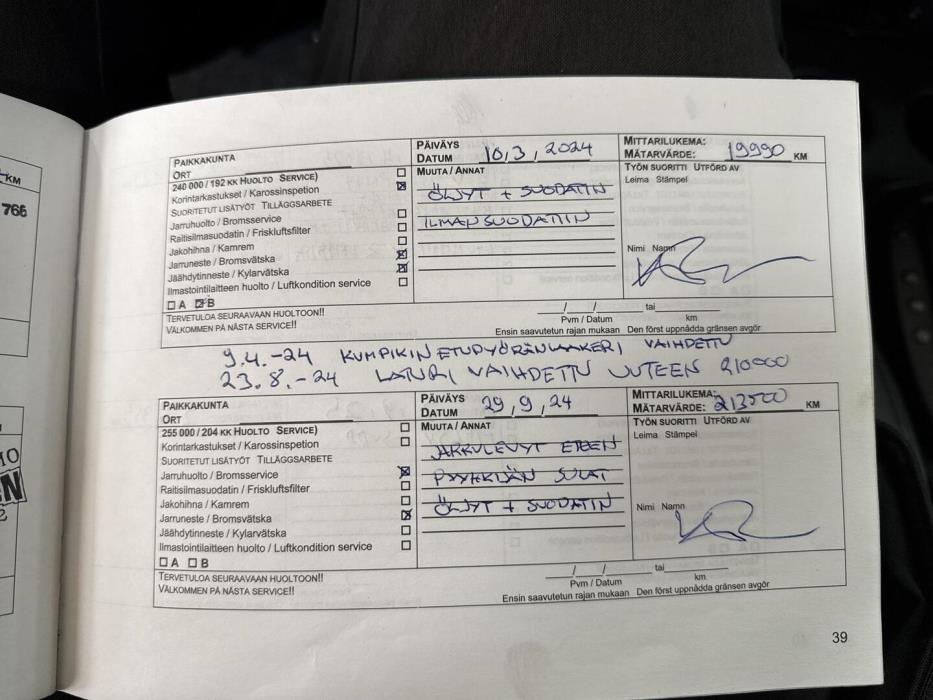 KM
766
10
N
2
PAIKKAKUNTA
ORT
PÄIVÄYS
DATUM 10,3, 2024
MITTARILUKEMA:
MÄTARVÄRDE: 19990 KM
240 000 / 192 KK HUOLTO SERVICE)
Korintarkastukset / Karossinspetion
SUORITETUT LISÄTYÖT TILLÄGGSARBETE
Jarruhuolto / Bromsservice
Raitisilmasuodatin / Friskluftsfilter
Jakohihna / Kamrem
Jarruneste / Bromsvätska
Jäähdytinneste / Kylarvätska
Ilmastointilaitteen huolto / Luftkondition service
A B
MUUTA / ANNAT
ÖLJYT + SUODATIN
ILMANSUODATIIN
TYÖN SUORITTI UTFÖRD AV
Leima Stämpel
Nimi Namn
TERVETULOA SEURAAVAAN HUOLTOON!!
VÄLKOMMEN PÅ NÄSTA SERVICE!!
/ / tai
Pvm / Datum km
Ensin saavutetun rajan mukaan Den först uppnådda gränsen avgör
9.4.-24 KUMPIKIN ETUPYÖRÄNLAAKERI VAIHDETTU
23.8.-24 LATURI VAIHDETTU UUTEEN 210000
PAIKKAKUNTA
ORT
PÄIVÄYS
DATUM 29,9,24
MITTARILUKEMA:
MÄTARVÄRDE: 213500 KM
255 000 / 204 KK HUOLTO SERVICE)
Korintarkastukset / Karossinspetion
SUORITETUT LISÄTYÖT TILLÄGGSARBETE
Jarruhuolto / Bromsservice
Raitisilmasuodatin / Friskluftsfilter
Jakohihna / Kamrem
Jarruneste / Bromsvätska
Jäähdytinneste / Kylarvätska
Ilmastointilaitteen huolto / Luftkondition service
A B
MUUTA / ANNAT
JARRULEVYT ETEEN
PYYHKIJÄN SULAT
ÖLJYT + SUODATIN
TYÖN SUORITTI UTFÖRD AV
Leima Stämpel
Nimi Namn
TERVETULOA SEURAAVAAN HUOLTOON!!
VÄLKOMMEN PÅ NÄSTA SERVICE!!
/ / tai
Pvm / Datum km
Ensin saavutetun rajan mukaan Den först uppnådda gränsen avgör
39